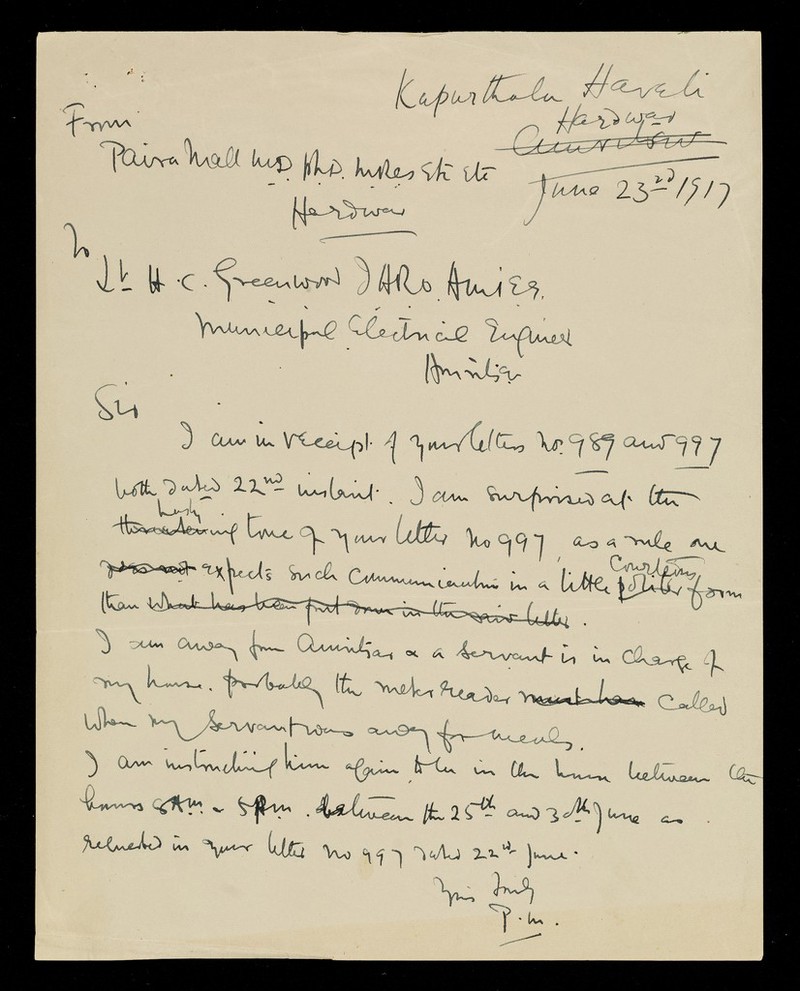 Kapurthala Haveli
Hardwar
Amritsar
June 23rd 1917
From
Paira Mall M.D. Ph.D. MRCS Etc Etc
Hardwar
To
Lt H.C. Greenwood IARO. AMIEE.
Municipal Electrical Engineer
Amritsar
Sir
I am in receipt of your letters No. 989 and 997
both dated 22nd instant. I am surprised at the
hasty
threatening tone of your letter No 997, as a rule one
does not expects such communication in a little politer form
courteous
than what has been put down in the said letter.
I am away from Amritsar & a servant is in charge of
my house. probably the meter reader must have called
when my servant was away for meals.
I am instructing him again to be in the house between the
hours 8 AM - 5 PM. between the 25th and 30th June as
requested in your letter No 997 dated 22nd June.
Yours truly
P.M.